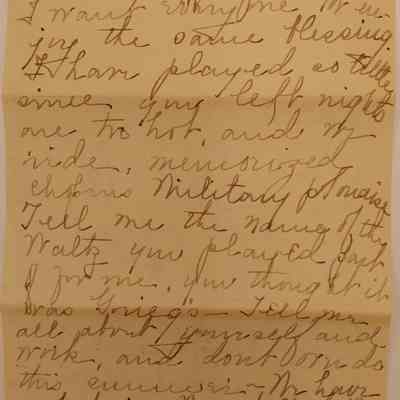 I want everyone to en-
joy the same blessing
I have played so little
since you left nights
are too hot, and we
ride, memorized
Chopin's Military polonaise
Tell me the name of the
Waltz you played part
of for me, you thought it
was Grieg's — Tell me
all about yourself and
work, and don't over do
this summer — We have